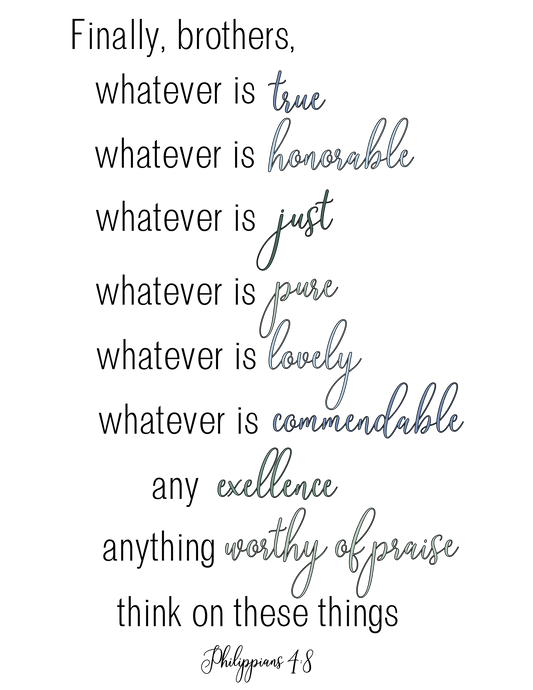 Finally, brothers,
whatever is true
whatever is honorable
whatever is just
whatever is pure
whatever is lovely
whatever is commendable
any exellence
anything worthy of praise
think on these things
Philippians 4:8